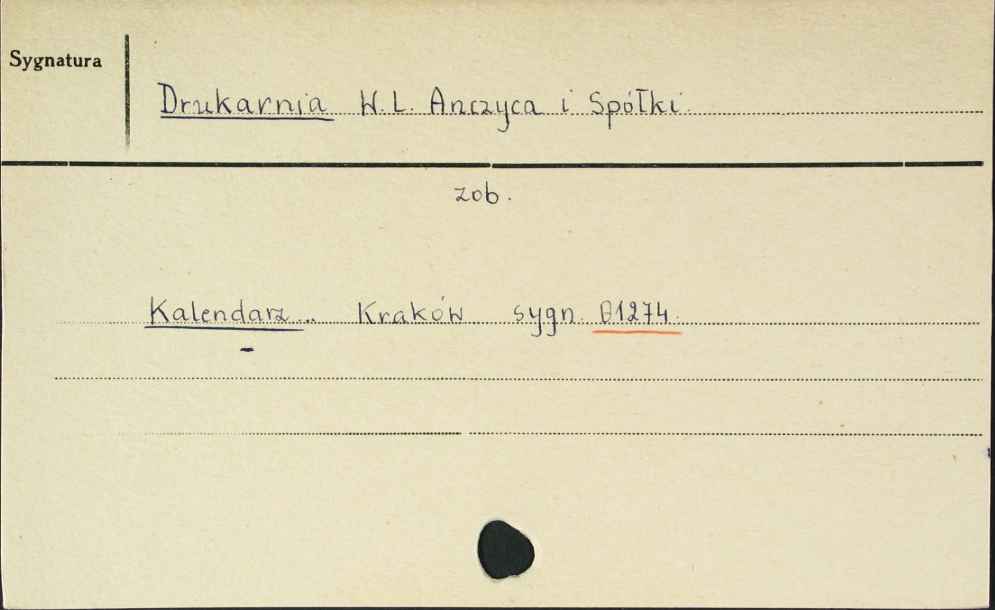 Sygnatura
Drukarnia W. L. Anczyca i Spółki.
zob.
Kalendarz... Kraków sygn. B1274.